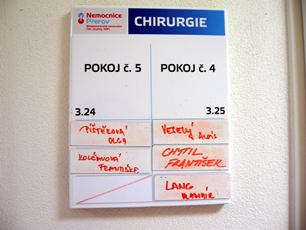 Nemocnice
Přerov
CHIRURGIE
POKOJ č. 5
POKOJ č. 4
3.24
3.25
PIŠTĚKOVÁ
OLGA
VESELÝ
ALOIS
FRANTIŠEK
CHYTIL
FRANTIŠEK
LANG
VLADIMÍR